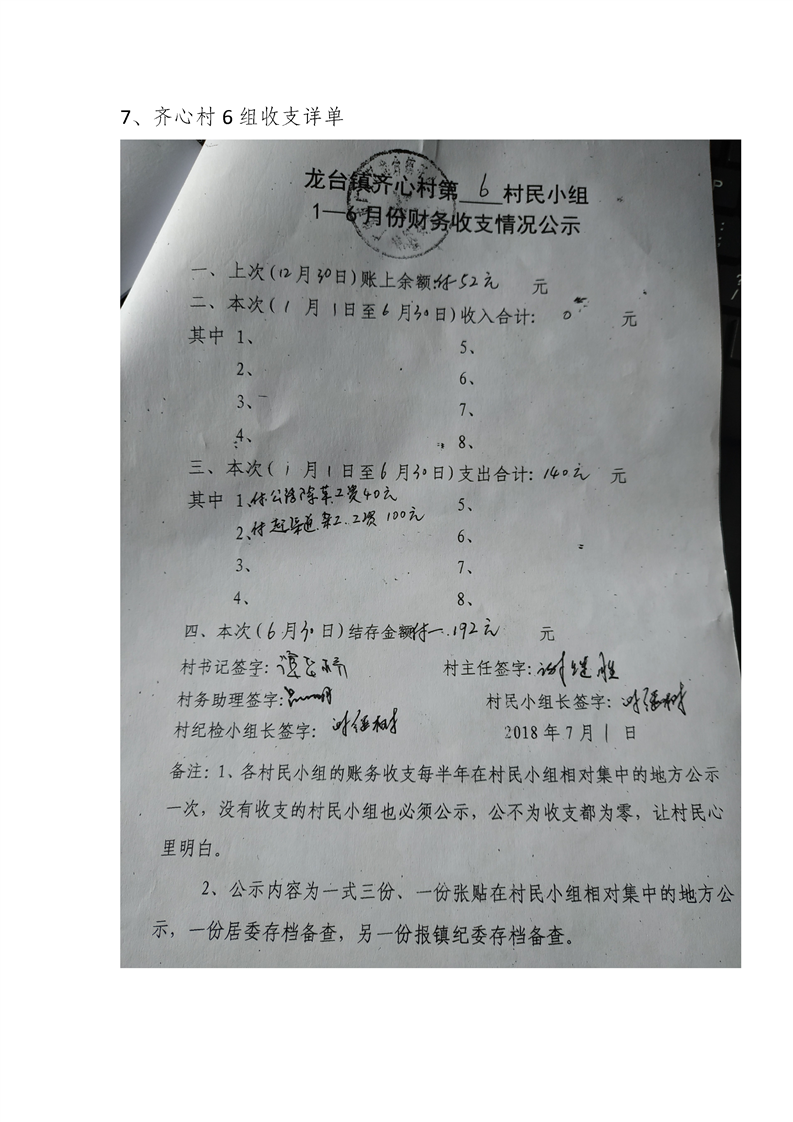 7、齐心村 6 组收支详单
龙台镇齐心村第 6 村民小组
1—6月份财务收支情况公示
一、上次(12月30日)账上余额: 52元 元
二、本次(1 月1日至6月30日)收入合计: 0 元
其中 1、
5、
2、
6、
3、
7、
4、
8、
三、本次(1 月1日至6月30日)支出合计: 140元 元
其中 1、付公路除草工资40元
5、
2、付 渠道 工资 100元
6、
3、
7、
4、
8、
四、本次(6月30日)结存金额 192元 元
村书记签字:
村主任签字:
村务助理签字:
村民小组长签字:
村纪检小组长签字:
2018年7月1日
备注: 1、各村民小组的账务收支每半年在村民小组相对集中的地方公示
一次，没有收支的村民小组也必须公示，公不为收支都为零，让村民心
里明白。
2、公示内容为一式三份、一份张贴在村民小组相对集中的地方公
示，一份居委存档备查，另一份报镇纪委存档备查。